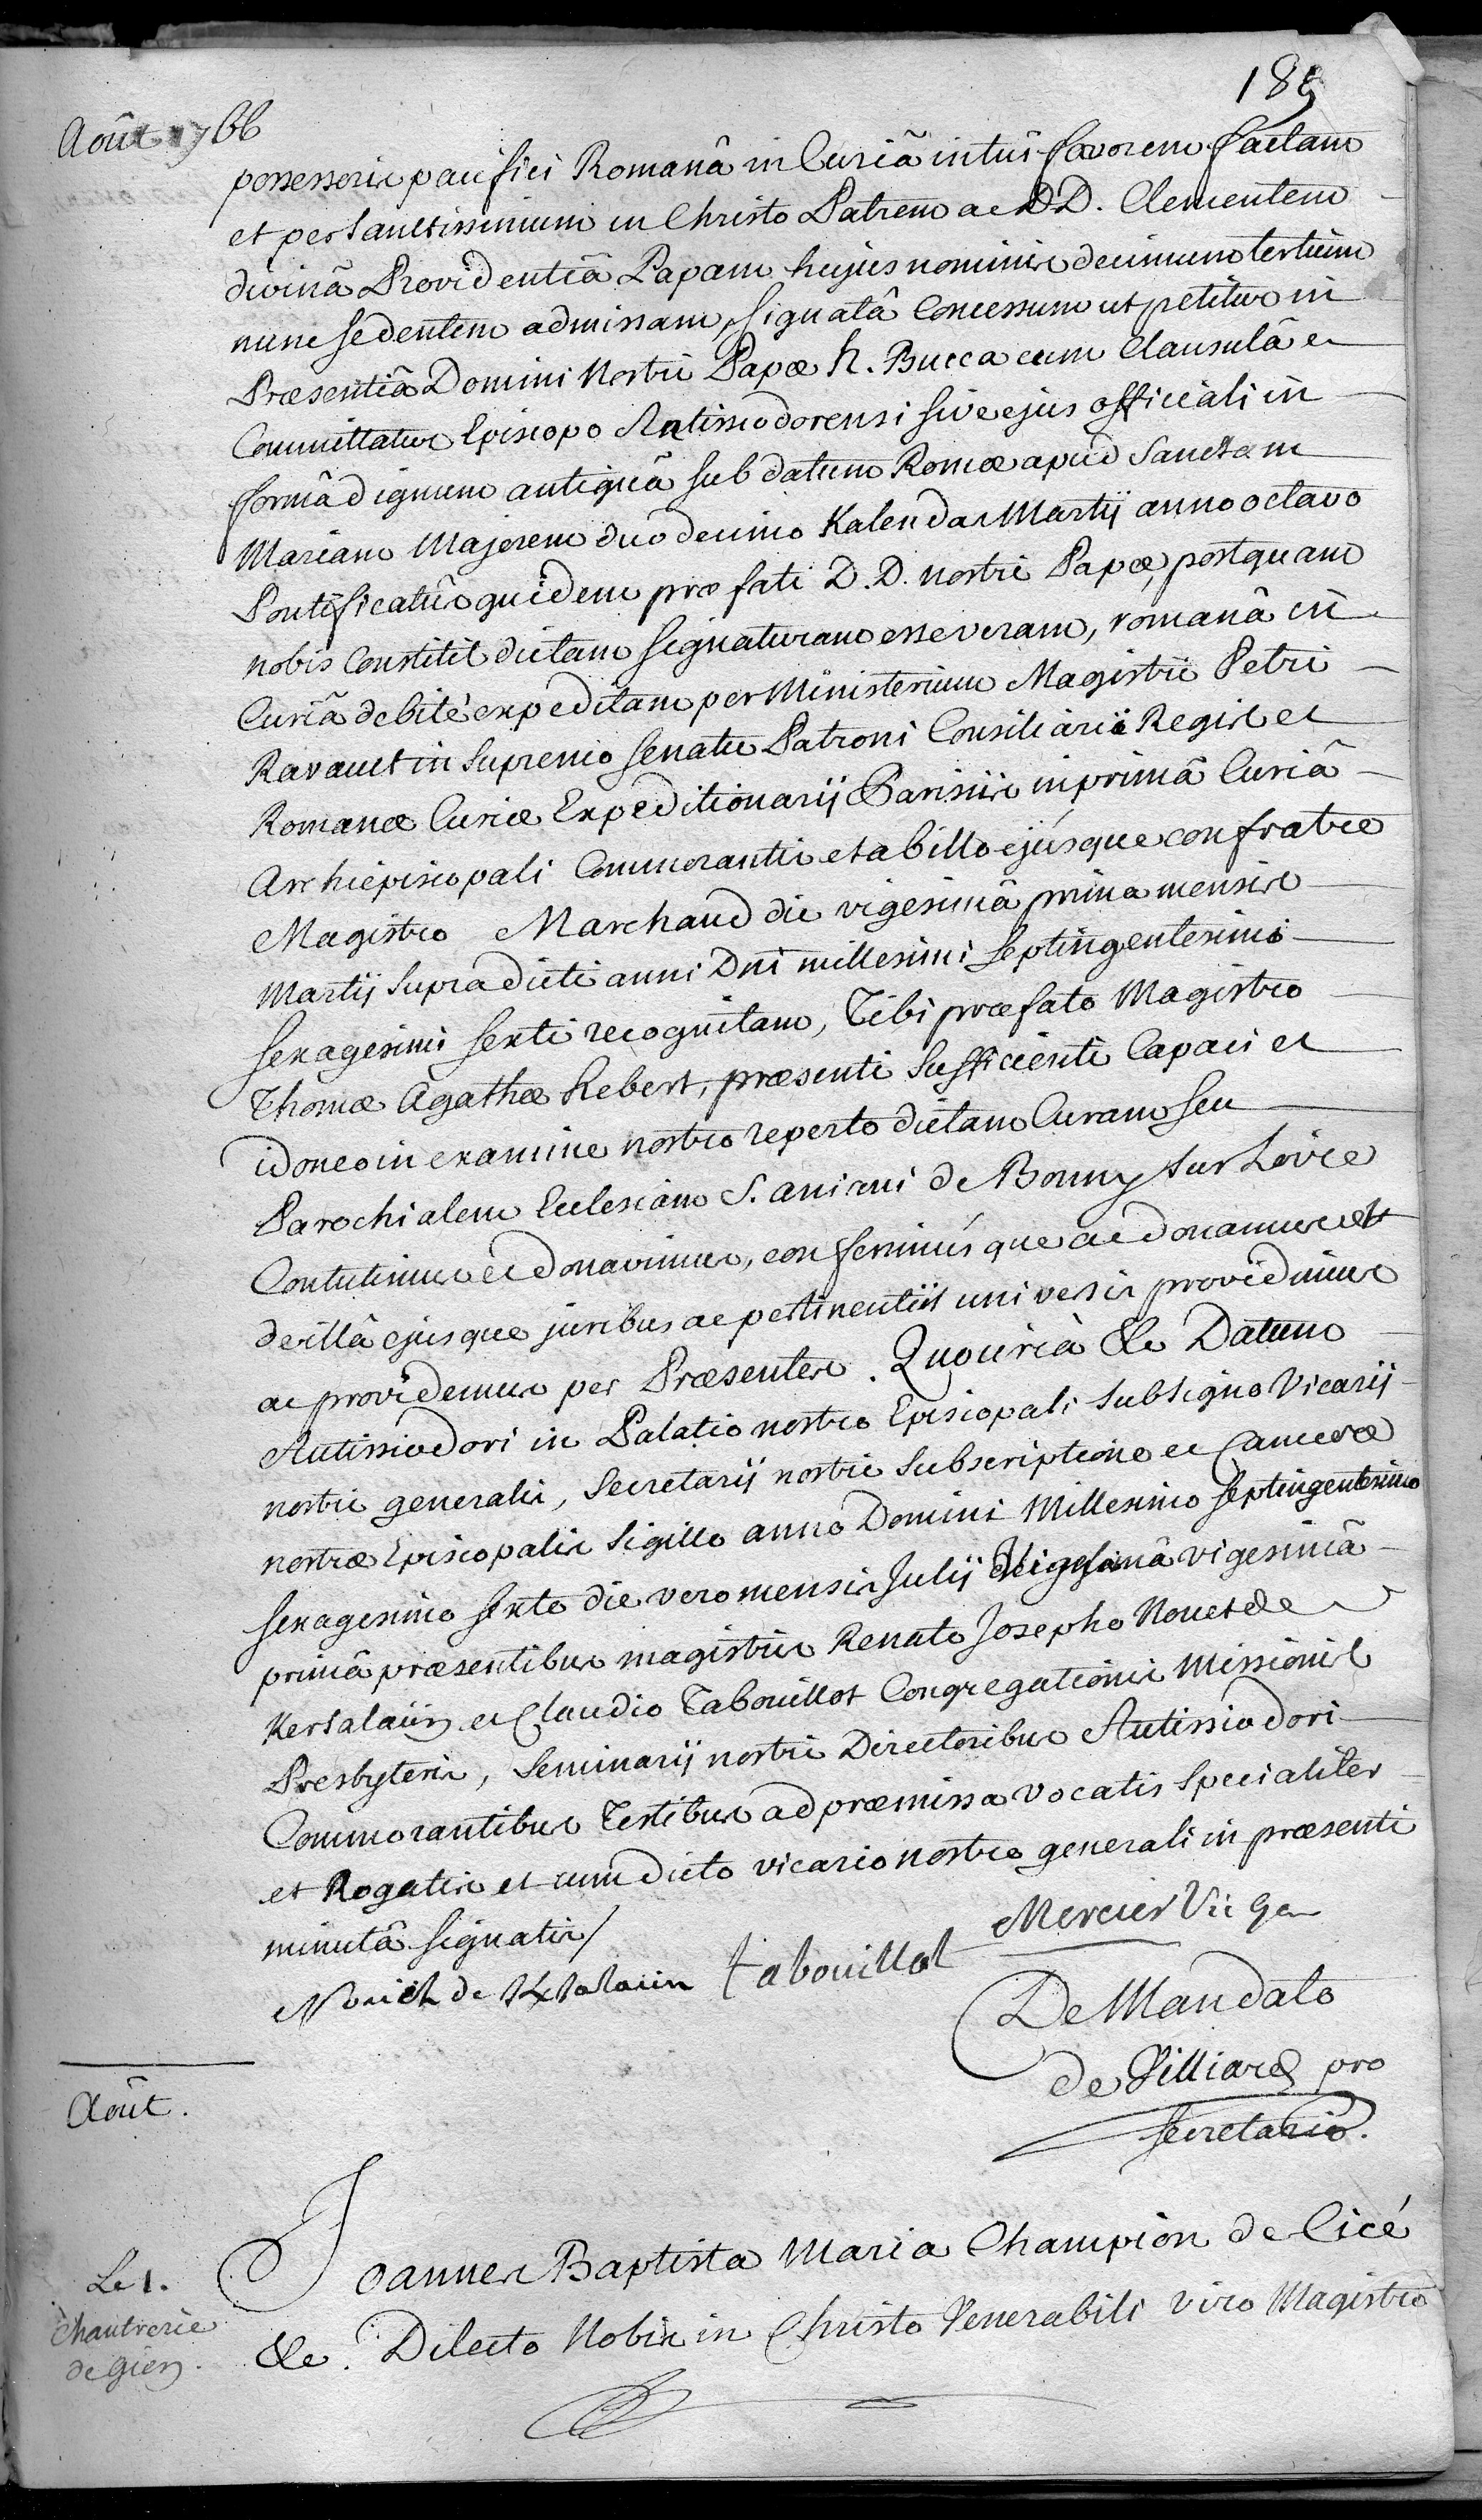 185
Août 1766
possessoris pacifici Romanâ in Curiâ in tuî favorem factam
et per sanctissimum in Christo Patrem ac D D. Clementem
divinâ Providentiâ Papam hujus nominis decimum tertium
nunc sedentem admissam, signatâ Concessum ut petitur in
Præsentiâ Domini Nostri Papæ h. Bucca cum Clausulâ et
Committatur Episcopo Antissiodorensi sive ejus officiali in
formâ dignum antiquâ sub datum Romæ apud Sanctam
Mariam Majorem duodecimo Kalendas Martij anno octavo
Pontificatûs quidem præfati D. D. nostri Papæ, postquam
nobis Constitit dictam signaturam esse veram, romanâ in
Curiâ debitè expeditam per Ministerium Magistri Petri
Ravault in Supremo Senatu Patroni Consiliarii Regis et
Romanæ Curiæ Expeditionarij Parisiis in primâ Curiâ
Archiepiscopali Commorantis et ab illo ejúsque confratre
Magistro Marchand die vigesimâ prima mensis
Martij supradicti anni Dni millesimi septingentesimi
sexagesimi sexti recognitam, Tibi præfato Magistro
Thomæ Agathæ hebert, præsenti Sufficienti Capaci et
idoneo in examine nostro reperto dictam Curam seu
Parochialem Ecclesiam S. aniani de Bonny sur Loire
Contulimus et donavimus, conferimúsque ac donamus et
de illâ ejusque juribus ac pertinentiis universis providimus
ac providemus per Præsentes. Quocircà &c Datum
Autissiodori in Palatio nostro Episcopali sub signo Vicarij
nostri generalis, Secretarij nostri subscriptione et Cameræ
nostræ Episcopalis Sigillo anno Domini Millesimo septingentesimo
sexagesimo sexto die vero mensis Julij vigesimâ
primâ præsentibus magistris Renato Josepho Nouet de
Kersalaün et Claudio Tabouillot Congregationis Missionis
Presbyteris, Seminarij nostri Directoribus Autissiodori
Commorantibus Testibus ad præmissa vocatis specialiter
et Rogatis et cum dicto vicario nostro generali in præsenti
minutâ signatis/
Mercier Vic Gen
de tabouillot
De Mandato
de Villiard pro
secretario.
Août.
Le 1.
Chantrerie
de Gien.
Joannes Baptista Maria Champion de Cicé
&c. Dilecto Nobis in Christo Venerabili viro Magistro